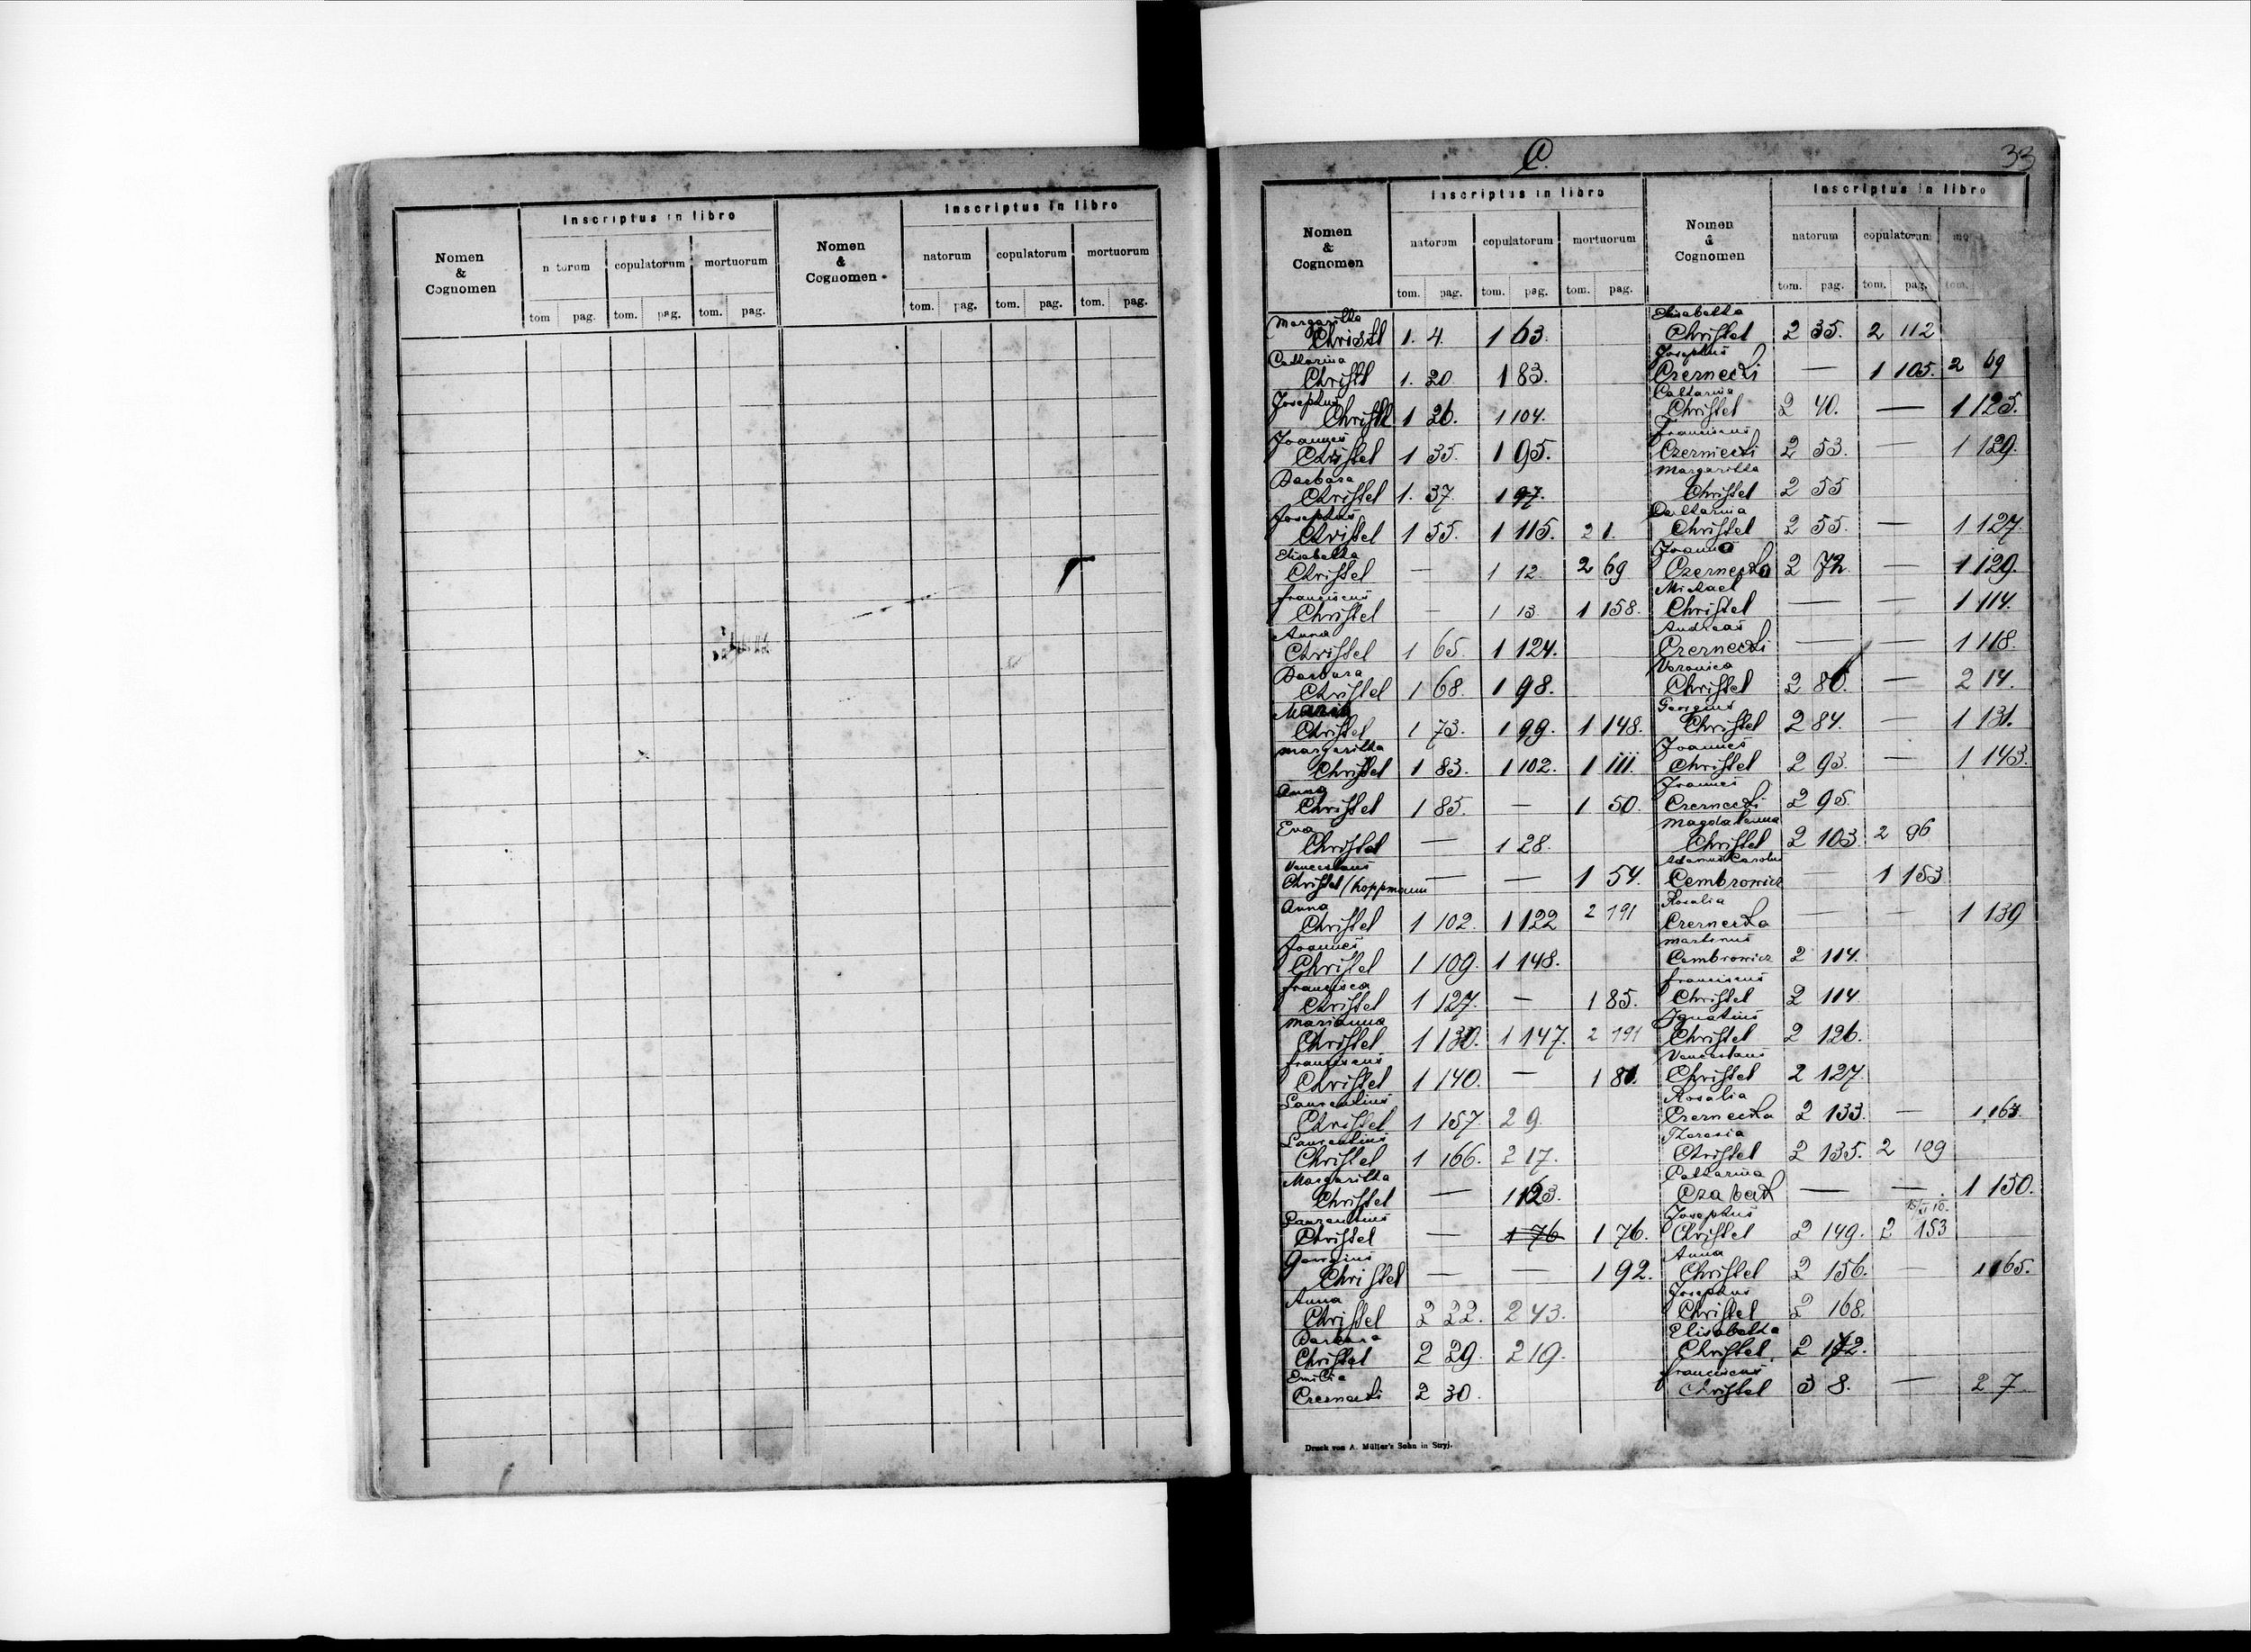 Nomen & Cognomen
Inscriptus in libro
n torum copulatorum mortuorum
tom pag. tom. pag. tom. pag.
Nomen & Cognomen
Inscriptus in libro
natorum copulatorum mortuorum
tom. pag. tom. pag. tom. pag.
C. 33
Nomen & Cognomen
Inscriptus in libro
natorum copulatorum mortuorum
tom. pag. tom. pag. tom. pag.
Margaritta
Christl 1. 4. 1 63.
Cattarina
Christl 1. 20. 1 83.
Josephus
Christl 1 26. 1 104.
Joannes
Christel 1 35. 1 95.
Barbara
Christel 1. 37. 1 97.
Josephus
Christel 1 55. 1 115. 2 1.
Elisabetta
Christel — 1 12. 2 69
Franciscus
Christel — 1 13 1 158.
Anna
Christel 1 65. 1 124.
Barbara
Christel 1 68. 1 98.
Maria
Christel 1 73. 1 99. 1 148.
Margaritta
Christel 1 83. 1 102. 1 111.
Anna
Christel 1 85. — 1 50.
Eva
Christel — 1 28.
Venceslaus
Christel/Koppmann — — 1 54.
Anna
Christel 1 102. 1 122 2 191
Joannes
Christel 1 109. 1 148.
Francisca
Christel 1 127. — 1 85.
Marianna
Christel 1 130. 1 147. 2 191
Franciscus
Christel 1 140. — 1 81.
Laurentius
Christel 1 157. 2 9.
Laurentius
Christel 1 166. 2 17.
Margaritta
Christel — 1 123.
Laurentius
Christel — 1 76 1 76.
Georgius
Christel — — 1 92.
Anna
Christel 2 22. 2 43.
Barbara
Christel 2 29. 2 19.
Emilia
Czernecki 2 30.
Nomen & Cognomen
Inscriptus in libro
natorum copulatorum mo
tom. pag. tom. pag. tom.
Elisabetta
Christel 2 35. 2 112
Josephus
Czernecki — 1 105. 2 69
Cattarina
Christel 2 40. — 1 125.
Franciscus
Czerniecki 2 53. — 1 129.
Margaritta
Christel 2 55
Cattarina
Christel 2 55. — 1 127.
Joanna
Czernecka 2 72. — 1 129.
Michael
Christel — — 1 114.
Andreas
Czernecki — — 1 118.
Veronica
Christel 2 86. — 2 14.
Georgius
Christel 2 84. — 1 131.
Joannes
Christel 2 93. — 1 143.
Joannes
Czernecki 2 95.
Magdalenna
Christel 2 103. 2 96
Adamus Carolus
Cembrowicz — 1 153
Rosalia
Czernecka — — 1 139
Martinus
Cembrowicz 2 114.
Franciscus
Christel 2 114
Ignatius
Christel 2 126.
Venceslaus
Christel 2 127.
Rosalia
Czernecka 2 133. — 1 163.
Theresia
Christel 2 135. 2 109
Cattarina
— — 1 150.
Josephus
Christel 2 149. 2 153
Anna
Christel 2 156. — 1 165.
Josephus
Christel 2 168.
Elisabetta
Christel 2 172.
Franciscus
Christel 3 8. — 2 7
Druck von A. Müller's Sohn in Stryj.